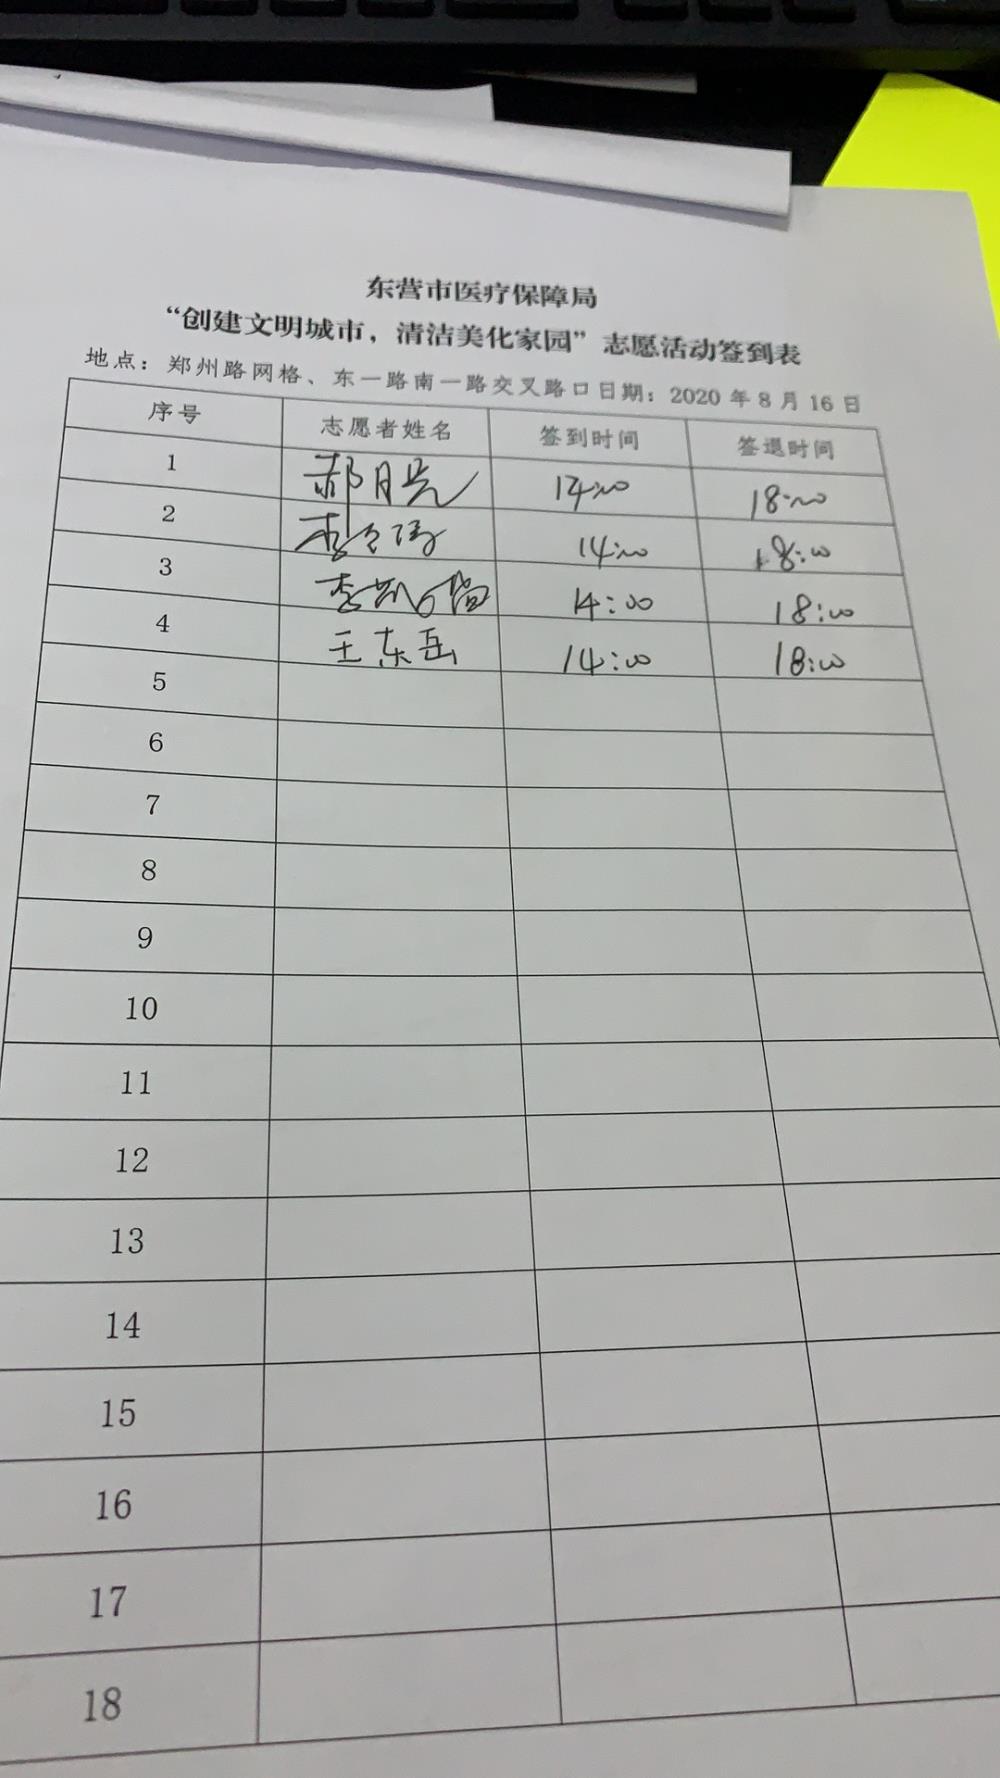 东营市医疗保障局
“创建文明城市，清洁美化家园”志愿活动签到表
地点：郑州路网格、东一路南一路交叉路口日期：2020年8月16日
序号 志愿者姓名 签到时间 签退时间
1 郝月亮 14:00 18:00
2 李 14:00 18:00
3 李凯 14:00 18:00
4 王东岳 14:00 18:00
5
6
7
8
9
10
11
12
13
14
15
16
17
18